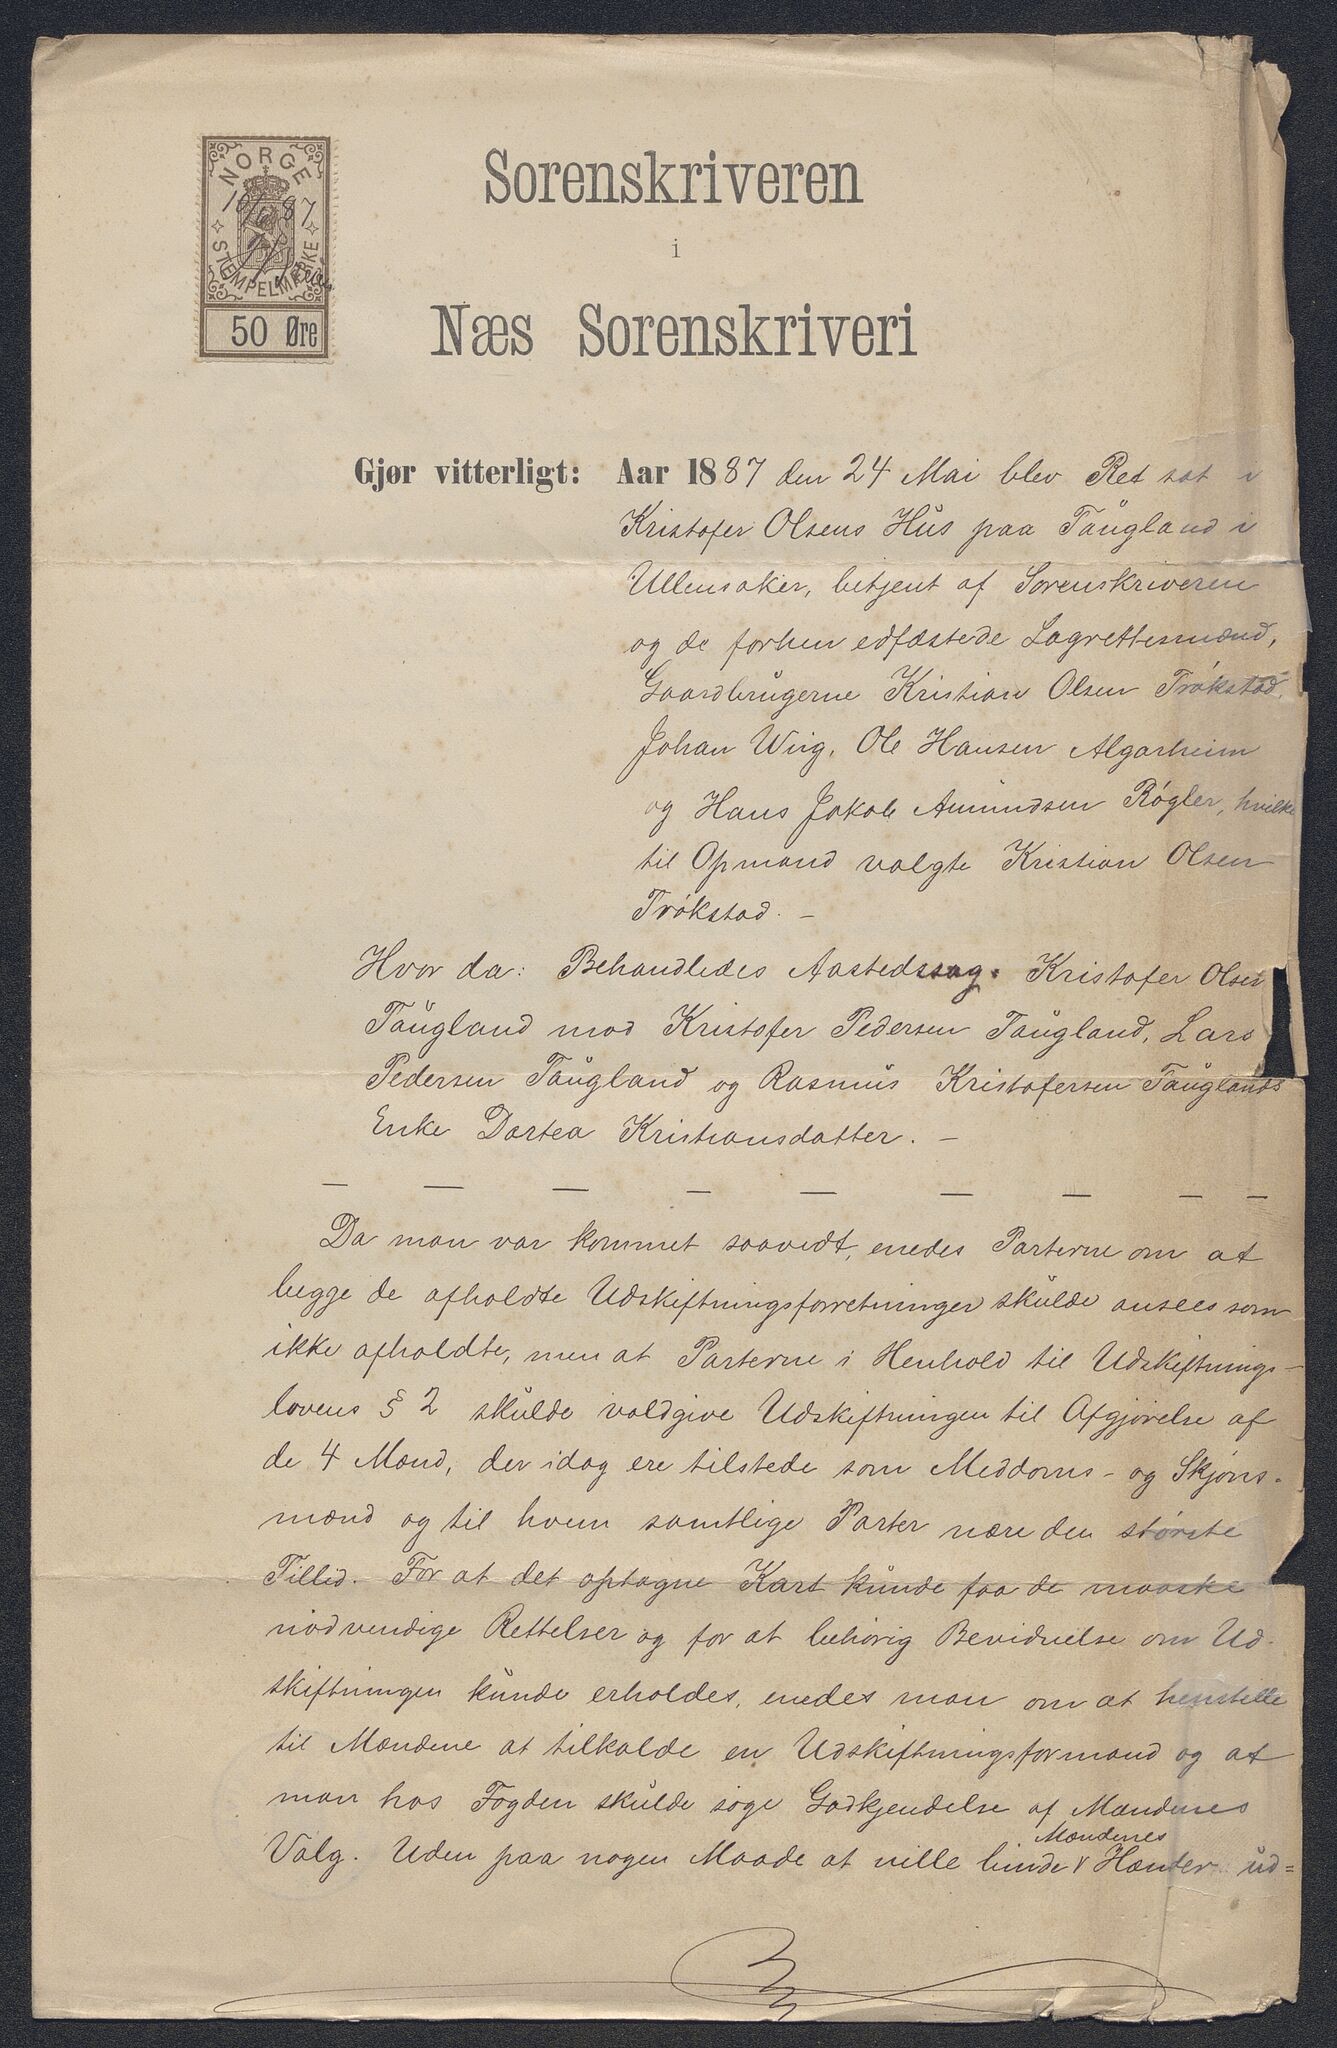 NORGE
10/6 87
STEMPELMÆRKE
50 Øre
Sorenskriveren
i
Næs Sorenskriveri
Gjør vitterligt: Aar 1887 den 24 Mai blev Ret sat i
Kristofer Olsens Hus paa Taugland i
Ullensaker, betjent af Sorenskriveren
og de forhen edfæstede Lagrettesmænd,
Gaardbrugerne Kristian Olsen Trøkstad,
Johan Wiig, Ole Hansen Algarheim
og Hans Jakob Amundsen Røgler, hvilke
til Opmand valgte Kristian Olsen
Trøkstad. —
Hvor da: Behandledes Aastedssag. Kristofer Olsen
Taugland mod Kristofer Pedersen Taugland, Lars
Pedersen Taugland og Rasmus Kristofersen Tauglands
Enke Dortea Kristiansdatter. —
— — — — — — — — —
Da man var kommet saavidt, enedes Parterne om at
begge de afholdte Udskiftningsforretninger skulde ansees som
ikke afholdte, men at Parterne i Henhold til Udskiftnings-
lovens § 2 skulde voldgive Udskiftningen til Afgjørelse af
de 4 Mænd, der idag ere tilstede som Meddoms- og Skjøns-
mænd og til hvem samtlige Parter nære den største
Tillid. For at det optagne Kart kunde faa de maaske
nødvendige Rettelser og for at behørig Bevidnelse om Ud-
skiftningen kunde erholdes, enedes man om at henstille
til Mændene at tilkalde en Udskiftningsformand og at
man hos Fogden skulde søge Godkjendelse af Mændenes
Valg. Uden paa nogen Maade at ville binde Mændenes Hænder ud=